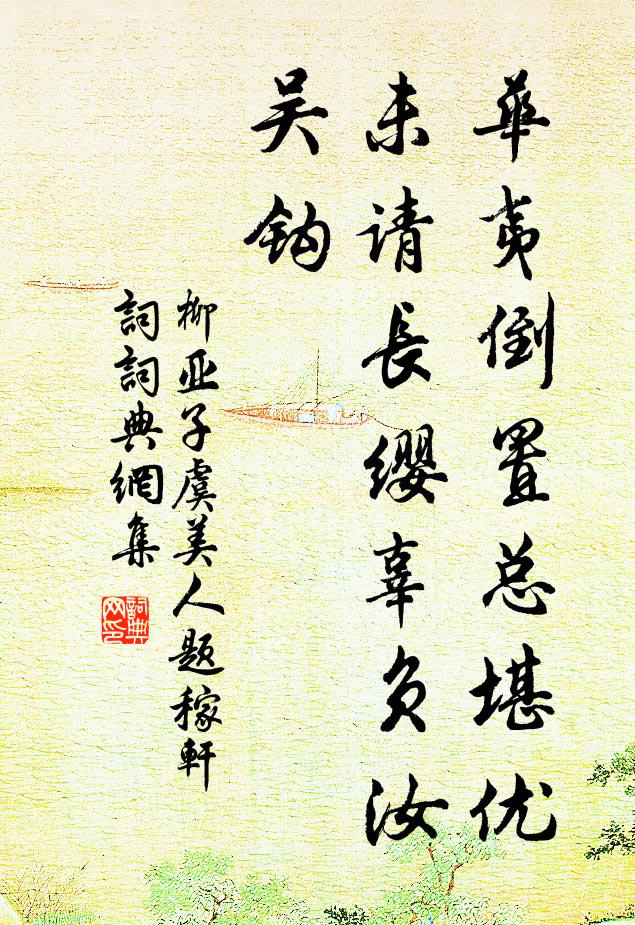 華夷倒置总堪优
未请長缨辜负汝
吴鈎
柳亚子虞美人题稼軒
詞詞典網集
詞典网印